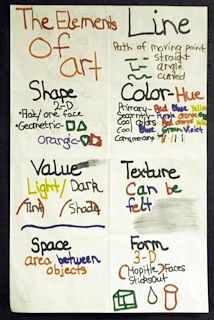 The Elements
Of
art
Line
Path of moving point
straight
angle
curved
Shape
2-D
•Flat/one face
•Geometric-
organic-
Color-Hue
Primary- Red Blue Yellow
Secondary- Purple Orange
Colors Red orange
Cool Blue Green Violet
Value
Light/Dark
Tint/Shade
Texture
Can be
felt
Space
area between
objects
Form
3-D
Faces
Sticks Out